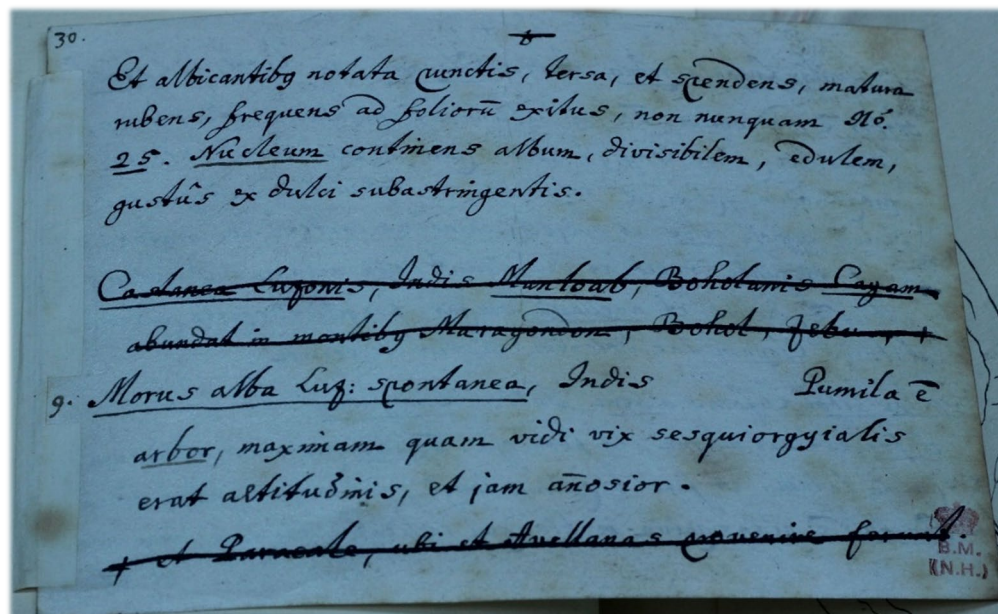 30.
Et albicantibꝯ notata cunctis, tersa, et spendens, matura
rubens, frequens ad foliorū exitus, non nunquam No.
25. Nucleum continens album, divisibilem, edulem,
gustûs ex dulci subastringentis.
Castanea Luzonis, Indis Manloab, Boholanis Cayam
abundat in montibꝯ Maragondon, Bohol, Zebu, +
9. Morus alba Luz: spontanea, Indis Pumila ē
arbor, maximam quam vidi vix sesquiorgyialis
erat altitudinis, et jam añosior.
+ et Paracale, ubi et Avellanas provenire ferunt.
B.M.
(N.H.)